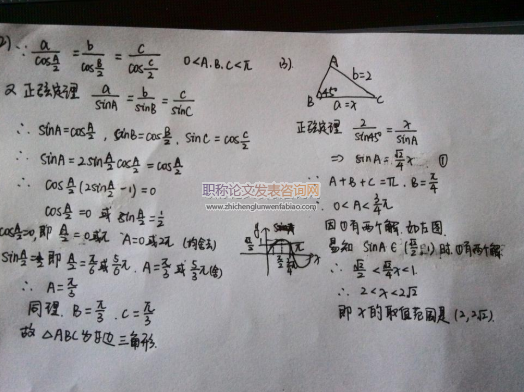 2) ∵ a/cos(A/2) = b/cos(B/2) = c/cos(C/2)   0<A.B.C<π
又 正弦定理 a/sinA = b/sinB = c/sinC
∴ sinA=cos A/2 , sinB=cos B/2 , sinC=cos C/2
∴ sinA=2sin A/2 cos A/2 = cos A/2
∴ cos A/2 (2sin A/2 -1)=0
cos A/2 =0 或 sin A/2 = 1/2
cos A/2 =0, 即 A/2 =0或π A=0或2π (均舍去)
sin A/2 = 1/2 即 A/2 = π/6 或 5/6 π. A= π/3 或 5/3 π(舍)
∴ A= π/3
同理. B= π/3 . C= π/3
故 △ABC为等边三角形.
3).
A
b=2
B 45° C
a=x
正弦定理 2/sin45° = x/sinA
⇒ sinA= √2/4 x. ①
∵ A+B+C=π. B= π/4
∴ 0<A< 3/4 π
因①有两个解. 如左图.
易知 sinA∈(√2/2,1)时. ①有两个解.
∴ √2/2 < √2/4 x<1.
∴ 2<x<2√2
即 x的取值范围是 (2,2√2).
y
sinA
x
职称论文发表咨询网
www.zhichenglunwenfabiao.com